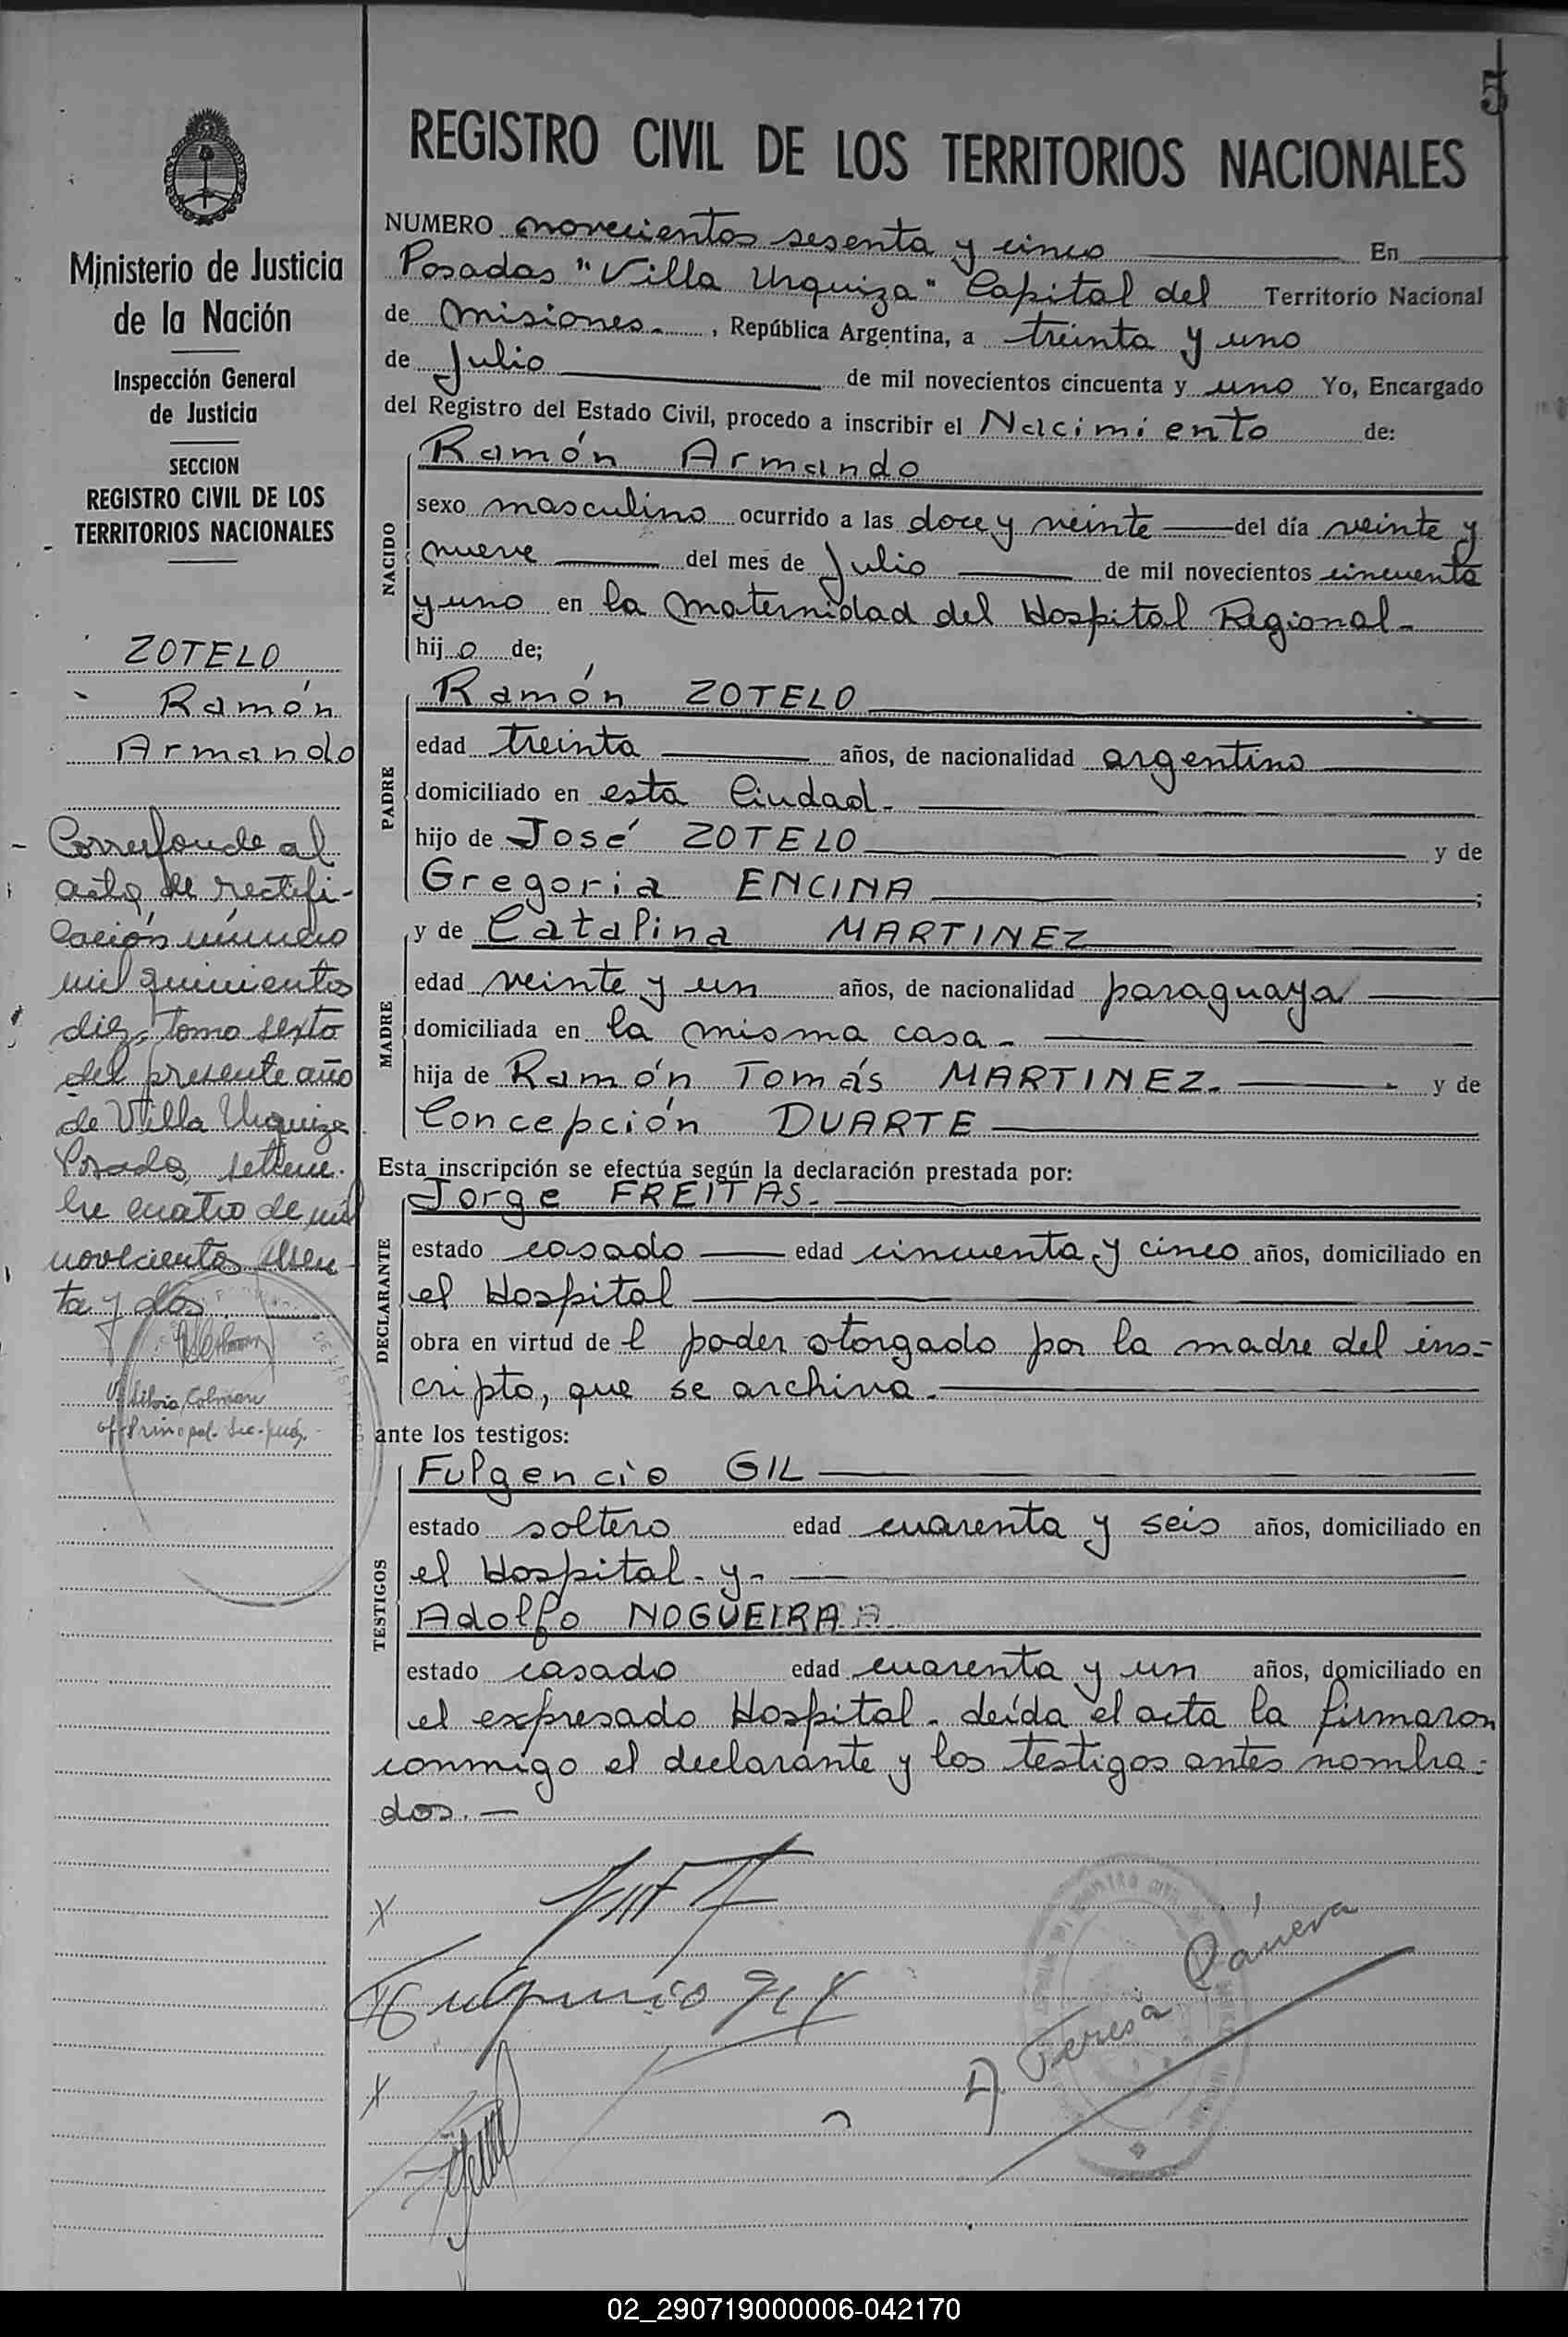 5
REGISTRO CIVIL DE LOS TERRITORIOS NACIONALES
Ministerio de Justicia
de la Nación
Inspección General
de Justicia
SECCION
REGISTRO CIVIL DE LOS
TERRITORIOS NACIONALES
ZOTELO
Ramón
Armando
Corresponde al
acta de rectifi-
cación número
mil quinientos
diez, tomo sexto
del presente año
de Villa Urquiza
Posadas, setiem-
bre cuatro de mil
novecientos
ta y dos
NUMERO novecientos sesenta y cinco En
Posadas "Villa Urquiza" Capital del Territorio Nacional
de Misiones.-, República Argentina, a treinta y uno
de Julio de mil novecientos cincuenta y uno Yo, Encargado
del Registro del Estado Civil, procedo a inscribir el Nacimiento de:
NACIDO
Ramón Armando
sexo masculino ocurrido a las doce y veinte del día veinte y
nueve del mes de Julio de mil novecientos cincuenta
y uno en la Maternidad del Hospital Regional-
hijo de;
PADRE
Ramón ZOTELO
edad treinta años, de nacionalidad argentino
domiciliado en esta Ciudad.-
hijo de José ZOTELO y de
Gregoria ENCINA ;
MADRE
y de Catalina MARTINEZ
edad veinte y un años, de nacionalidad paraguaya
domiciliada en la misma casa.-
hija de Ramón Tomás MARTINEZ.- y de
Concepción DUARTE
Esta inscripción se efectúa según la declaración prestada por:
DECLARANTE
Jorge FREITAS.-
estado casado edad cincuenta y cinco años, domiciliado en
el Hospital
obra en virtud de l poder otorgado por la madre del ins-
cripto, que se archiva.-
ante los testigos:
TESTIGOS
Fulgencio GIL
estado soltero edad cuarenta y seis años, domiciliado en
el Hospital.- y.-
Adolfo NOGUEIRA
estado casado edad cuarenta y un años, domiciliado en
el expresado Hospital.- Leída el acta la firmaron
conmigo el declarante y los testigos antes nombra-
dos.-
Fulgencio Gil
Teresa
02_290719000006-042170